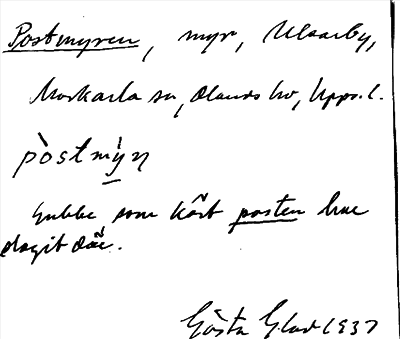 Postmyren, myr, Ulvarby,
Morkarla sn, Olands hd, Upps. l.
pòstmỳn
Gubbe som kört posten har
dragit där.
Gösta Glad 1937